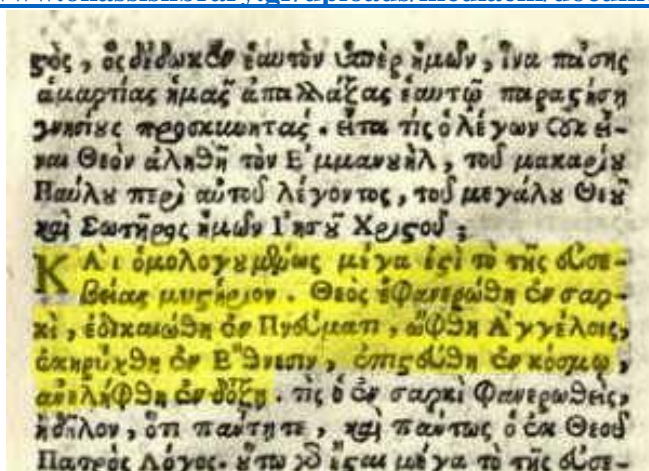 ϛὸς, ὃς δέδωκεν ἑαυτὸν ὑπὲρ ἡμῶν, ἵνα πάσης
ἁμαρτίας ἡμᾶς ἀπαλλάξας ἑαυτῷ παραϛήσῃ
γνησίους προσκυνητάς. εἶτα τίς ὁ λέγων οὐκ εἶ-
ναι Θεὸν ἀληθῆ τὸν Ἐμμανουὴλ, τοῦ μακαρίου
Παύλου περὶ αὐτοῦ λέγοντος, τοῦ μεγάλου Θεοῦ
καὶ Σωτῆρος ἡμῶν Ἰησοῦ Χριϛοῦ;
ΚΑὶ ὁμολογουμένως μέγα ἐϛὶ τὸ τῆς εὐσε-
βείας μυϛήριον. Θεὸς ἐφανερώθη ἐν σαρ-
κὶ, ἐδικαιώθη ἐν Πνεύματι, ὤφθη Ἀγγέλοις,
ἐκηρύχθη ἐν Ἔθνεσιν, ἐπιϛεύθη ἐν κόσμῳ,
ἀνελήφθη ἐν δόξῃ. τίς ὁ ἐν σαρκὶ Φανερωθεὶς,
ἢ δῆλον, ὅτι πάντῃ τε, καὶ πάντως ὁ ἐκ Θεοῦ
Πατρὸς Λόγος. οὕτω γὰρ ἔϛαι μέγα τὸ τῆς εὐσε-